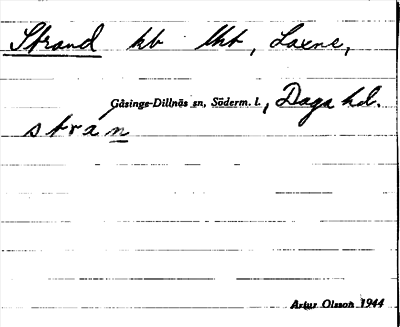 Strand hb lht, Laxne,
Gåsinge-Dillnäs sn, Söderm. l., Daga hd.
strán
Artur Olsson 1944